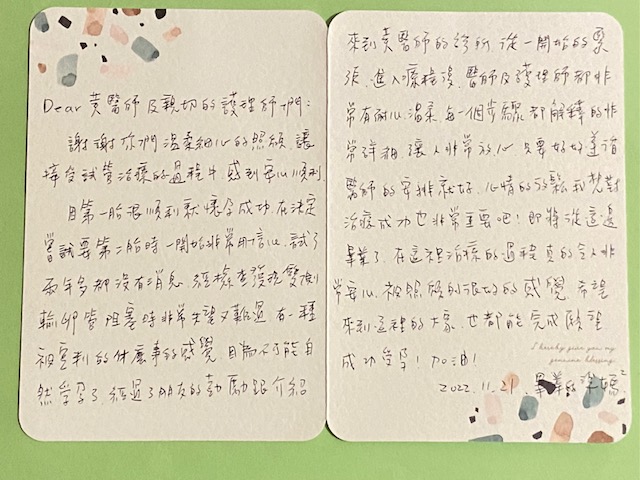 Dear 黃醫師及親切的護理師們：
謝謝你們溫柔細心的照顧 讓
接受試管治療的過程中 感到安心順利.
因第一胎很順利就懷孕成功 在決定
嘗試要第二胎時 一開始非常有信心. 試了
兩年多都沒有消息 經檢查發現雙側
輸卵管阻塞時 非常失望又難過 有一種
被宣判的什麼事的感覺 因為不可能自
然受孕了. 經過了朋友的鼓勵跟介紹
來到黃醫師的診所. 從一開始的緊
張. 進入療程後. 醫師及護理師都非
常有耐心. 溫柔. 每一個步驟都解釋的非
常詳細 讓人非常放心 只要好好遵循
醫師的安排就好. 心情的放鬆我想對
治療成功也非常重要吧! 即將從這邊
畢業了. 在這裡治療的過程 真的令人非
常安心. 被照顧的很好的感覺. 希望
來到這裡的大家. 也都能完成願望
成功受孕! 加油!
I hereby give you my
genuine blessing.
2022.11.21. 畢業的準媽